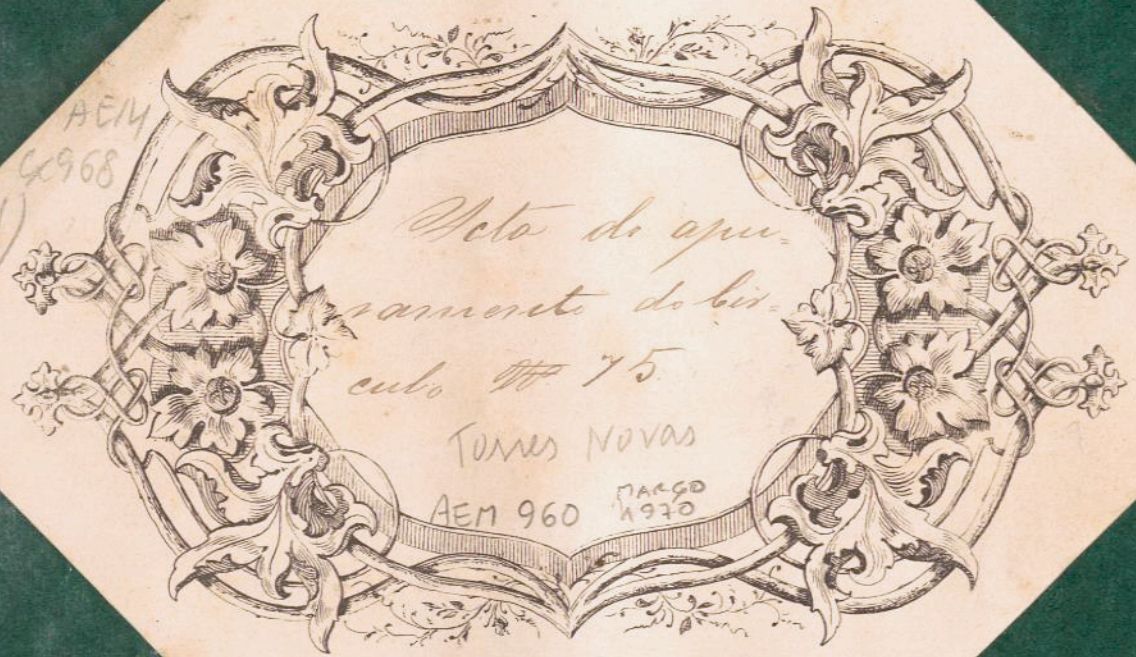 AEM
Cx968
Acta do apu=
ramento do Cir=
culo Nº 75
Torres Novas
AEM 960 MARÇO 1970